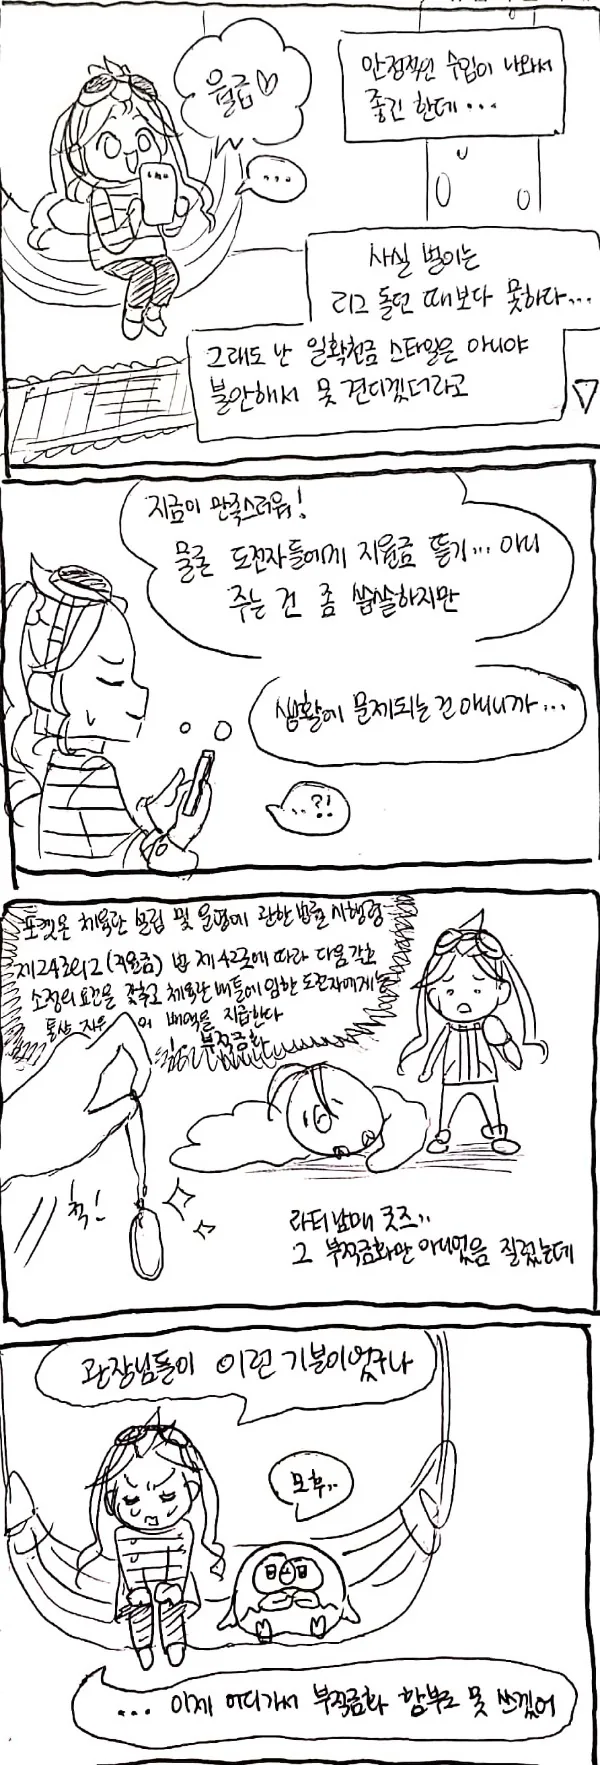 월급♡
안정적인 수입이 나와서
좋긴 한데...
...
사실 벌이는
리그 돌던 때보다 못하다...
그래도 난 일확천금 스타일은 아니야
불안해서 못 견디겠더라고
지금이 만족스러워!
물론 도전자들에게 지원금 뜯기... 아니
주는 건 좀 씁쓸하지만
생활에 문제되는 건 아니니까...
..?!
포켓몬 체육관 설립 및 운영에 관한 법률 시행령
제24조의2 (지원금) 법 제42조에 따라 다음 각호
소정의 요건을 갖추고 체육관 배틀에 임한 도전자에게는
통상 지우 의 배액을 지급한다
부적금화
척!
라티남매 굿즈..
그 부적금화만 아니었음 질렀는데
관장님들이 이런 기분이었구나
모후..
... 이제 어디가서 부적금화 함부로 못 쓰겠어